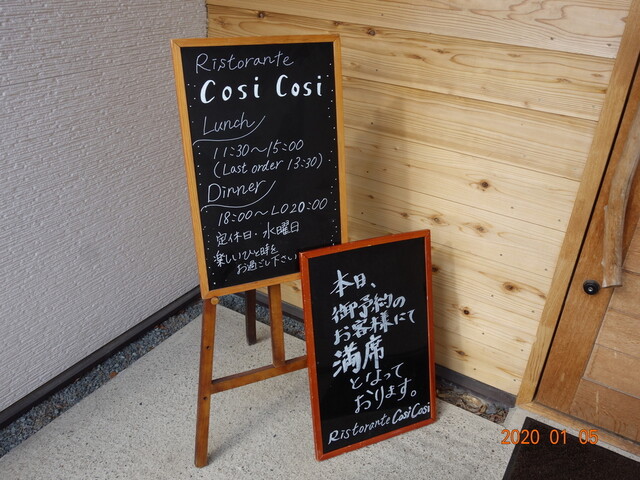 Ristorante
Cosi Cosi
Lunch
11:30～15:00
(Last order 13:30)
Dinner
18:00～LO20:00
定休日・水曜日
楽しいひと時を
お過ごし下さい
本日、
御予約の
お客様にて
満席
となって
おります。
Ristorante Cosi Cosi
2020 01 05